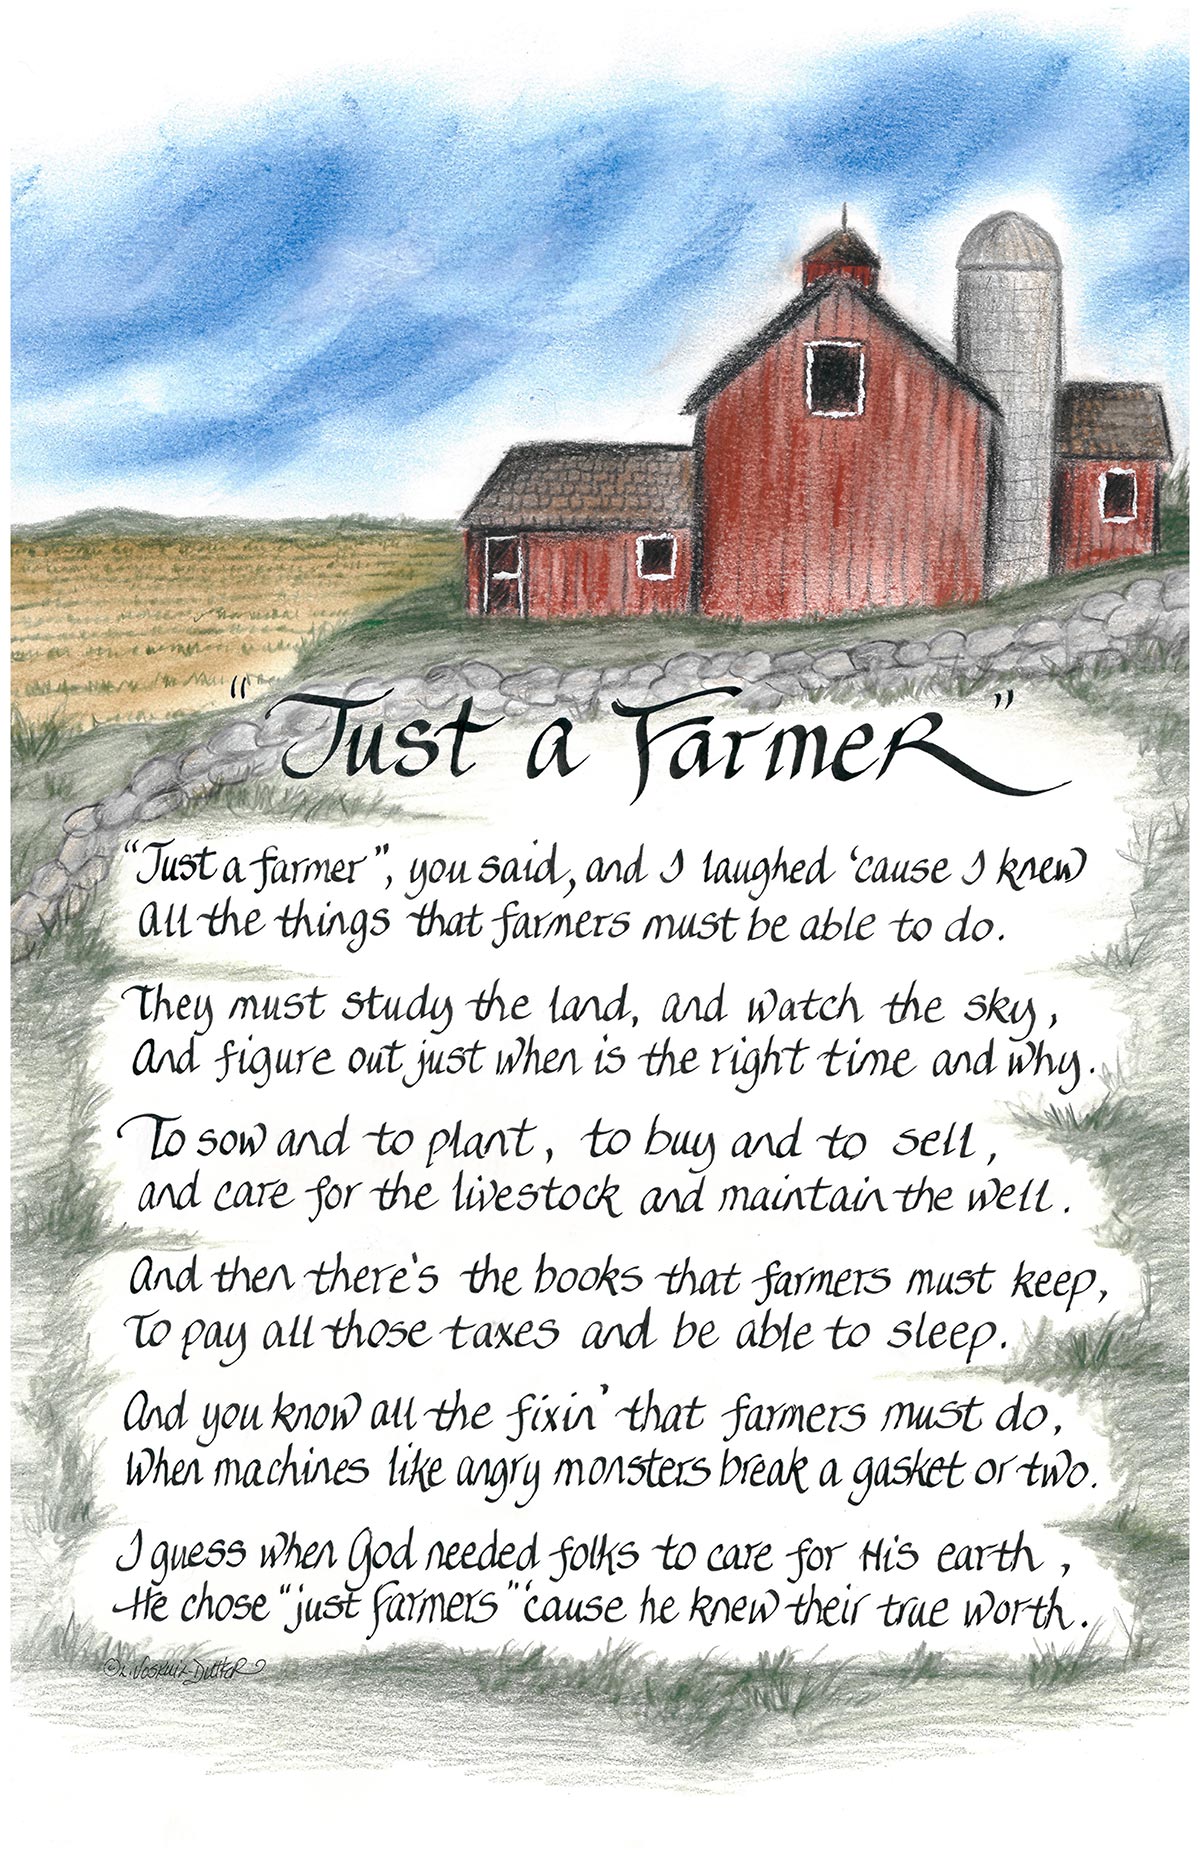 "Just a Farmer"
"Just a farmer", you said, and I laughed 'cause I knew
All the things that farmers must be able to do.
They must study the land, and watch the sky,
And figure out just when is the right time and why.
To sow and to plant, to buy and to sell,
and care for the livestock and maintain the well.
And then there's the books that farmers must keep,
To pay all those taxes and be able to sleep.
And you know all the fixin' that farmers must do,
When machines like angry monsters break a gasket or two.
I guess when God needed folks to care for His earth,
He chose "just farmers" 'cause he knew their true worth.
©L. Voskuil-Dutter